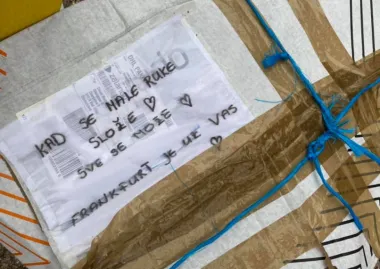 KAD SE MALE RUKE
SLOŽE ♡
SVE SE MOŽE ♡
FRANKFURT JE UZ VAS
♡